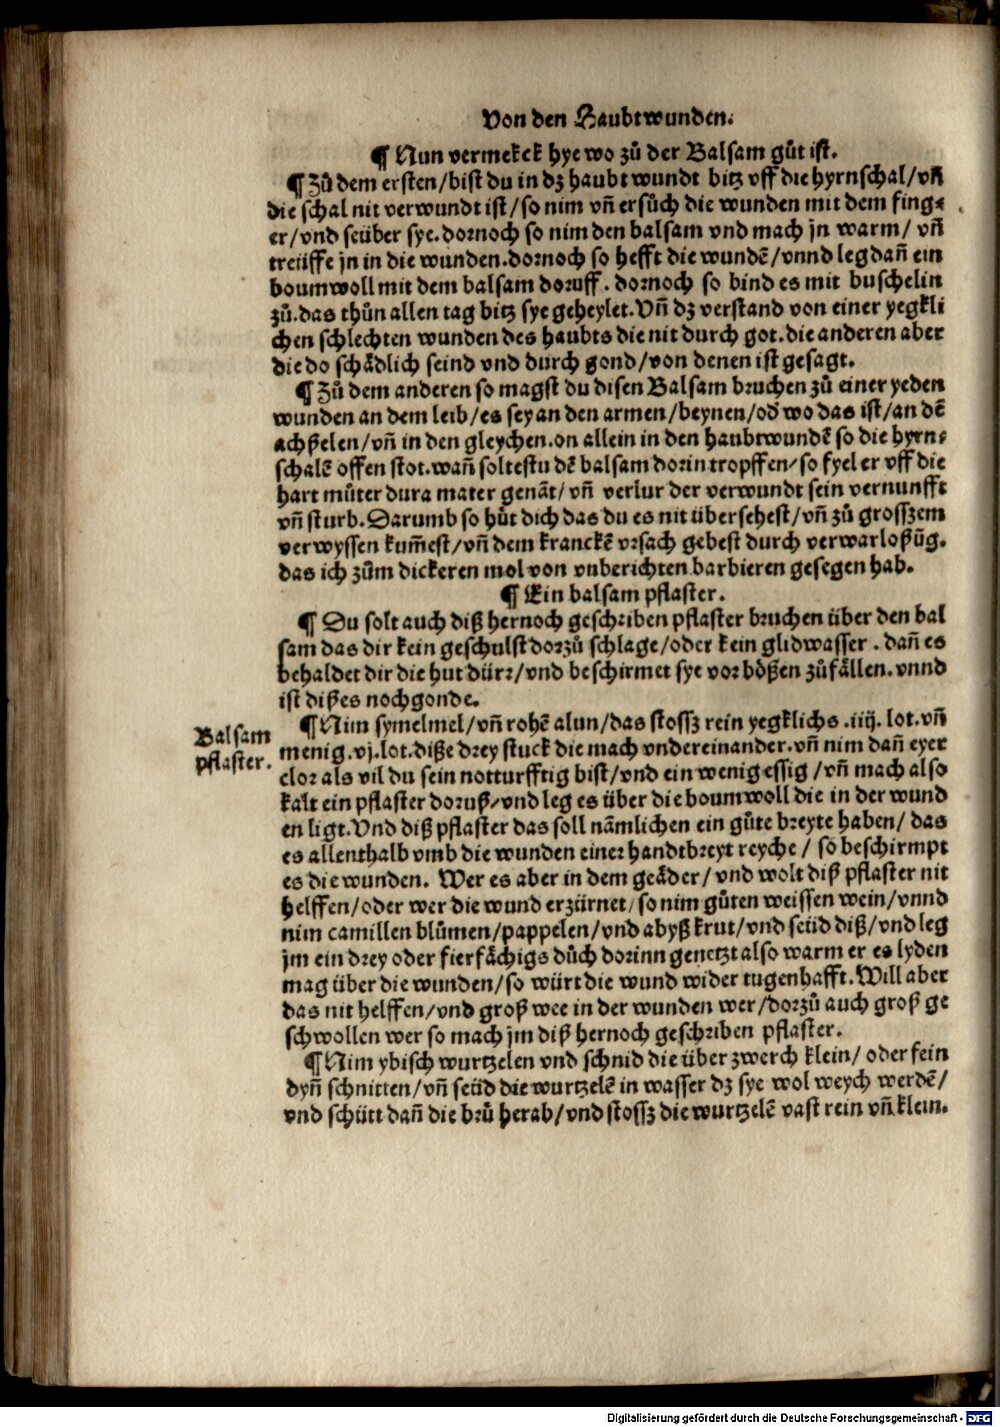 Von den Haubtwunden.
¶ Nun vermekck hye wo zů der Balsam gůt ist.
¶ Zů dem ersten/bist du in dz haubt wundt bitz vff die hyrnschal/vñ
die schal nit verwundt ist/so nim vñ ersůch die wunden mit dem fing⸗
er/vnd seüber sye.dornoch so nim den balsam vnd mach jn warm/ vñ
treüffe jn in die wunden.dornoch so hefft die wundē/vnnd leg dañ ein
boumwoll mit dem balsam doruff. dornoch so bind es mit buschelin
zů.das thůn allen tag bitz sye geheylet.Vñ dz verstand von einer yegkli
chen schlechten wunden des haubts die nit durch got.die anderen aber
die do schädlich seind vnd durch gond/von denen ist gesagt.
¶ Zů dem anderen so magst du disen Balsam bruchen zů einer yeden
wunden an dem leib/es sey an den armen/beynen/od' wo das ist/an dē
achßelen/vñ in den gleychen.on allein in den haubtwundē so die hyrn⸗
schalē offen stot.wañ soltestu dē balsam dorin tropffen/so fyel er vff die
hart můter dura mater genāt/ vñ verlur der verwundt sein vernunfft
vñ sturb.Darumb so hůt dich das du es nit übersehest/vñ zů grosszem
verwyssen kum̄est/vñ dem kranckē vrsach gebest durch verwarloßūg.
das ich zům dickeren mol von vnberichten barbieren gesegen hab.
¶ Ein balsam pflaster.
¶ Du solt auch diß hernoch geschriben pflaster bruchen über den bal
sam das dir kein geschulst dorzů schlage/oder kein glidwasser. dañ es
behaldet dir die hut dürr/vnd beschirmet sye vor bößen zůfällen.vnnd
ist dißes nochgonde.
Balsam
pflaster.
¶ Nim symelmel/vñ rohē alun/das stossz rein yegklichs .iiij. lot.vñ
menig.vj.lot.diße drey stuck die mach vndereinander.vñ nim dañ eyer
clor als vil du sein notturfftig bist/vnd ein wenig essig/vñ mach also
kalt ein pflaster doruß/vnd leg es über die boumwoll die in der wund
en ligt.Vnd diß pflaster das soll nämlichen ein gůte breyte haben/ das
es allenthalb vmb die wunden einer handtbreyt reyche/ so beschirmpt
es die wunden. Wer es aber in dem geäder/vnd wolt diß pflaster nit
helffen/oder wer die wund erzürnet/so nim gůten weissen wein/vnnd
nim camillen blůmen/pappelen/vnd abyß krut/vnd seüd diß/vnd leg
jm ein drey oder fierfächigs důch dorinn genetzt also warm er es lyden
mag über die wunden/so würt die wund wider tugenhafft.Will aber
das nit helffen/vnd groß wee in der wunden wer/dorzů auch groß ge
schwollen wer so mach jm diß hernoch geschriben pflaster.
¶ Nim ybisch wurtzelen vnd schnid die über zwerch klein/ oder fein
dyñ schnitten/vñ seüd die wurtzelē in wasser dz sye wol weych werdē/
vnd schütt dañ die brů herab/vnd stossz die wurtzelē vast rein vñ klein.
Digitalisierung gefördert durch die Deutsche Forschungsgemeinschaft - DFG